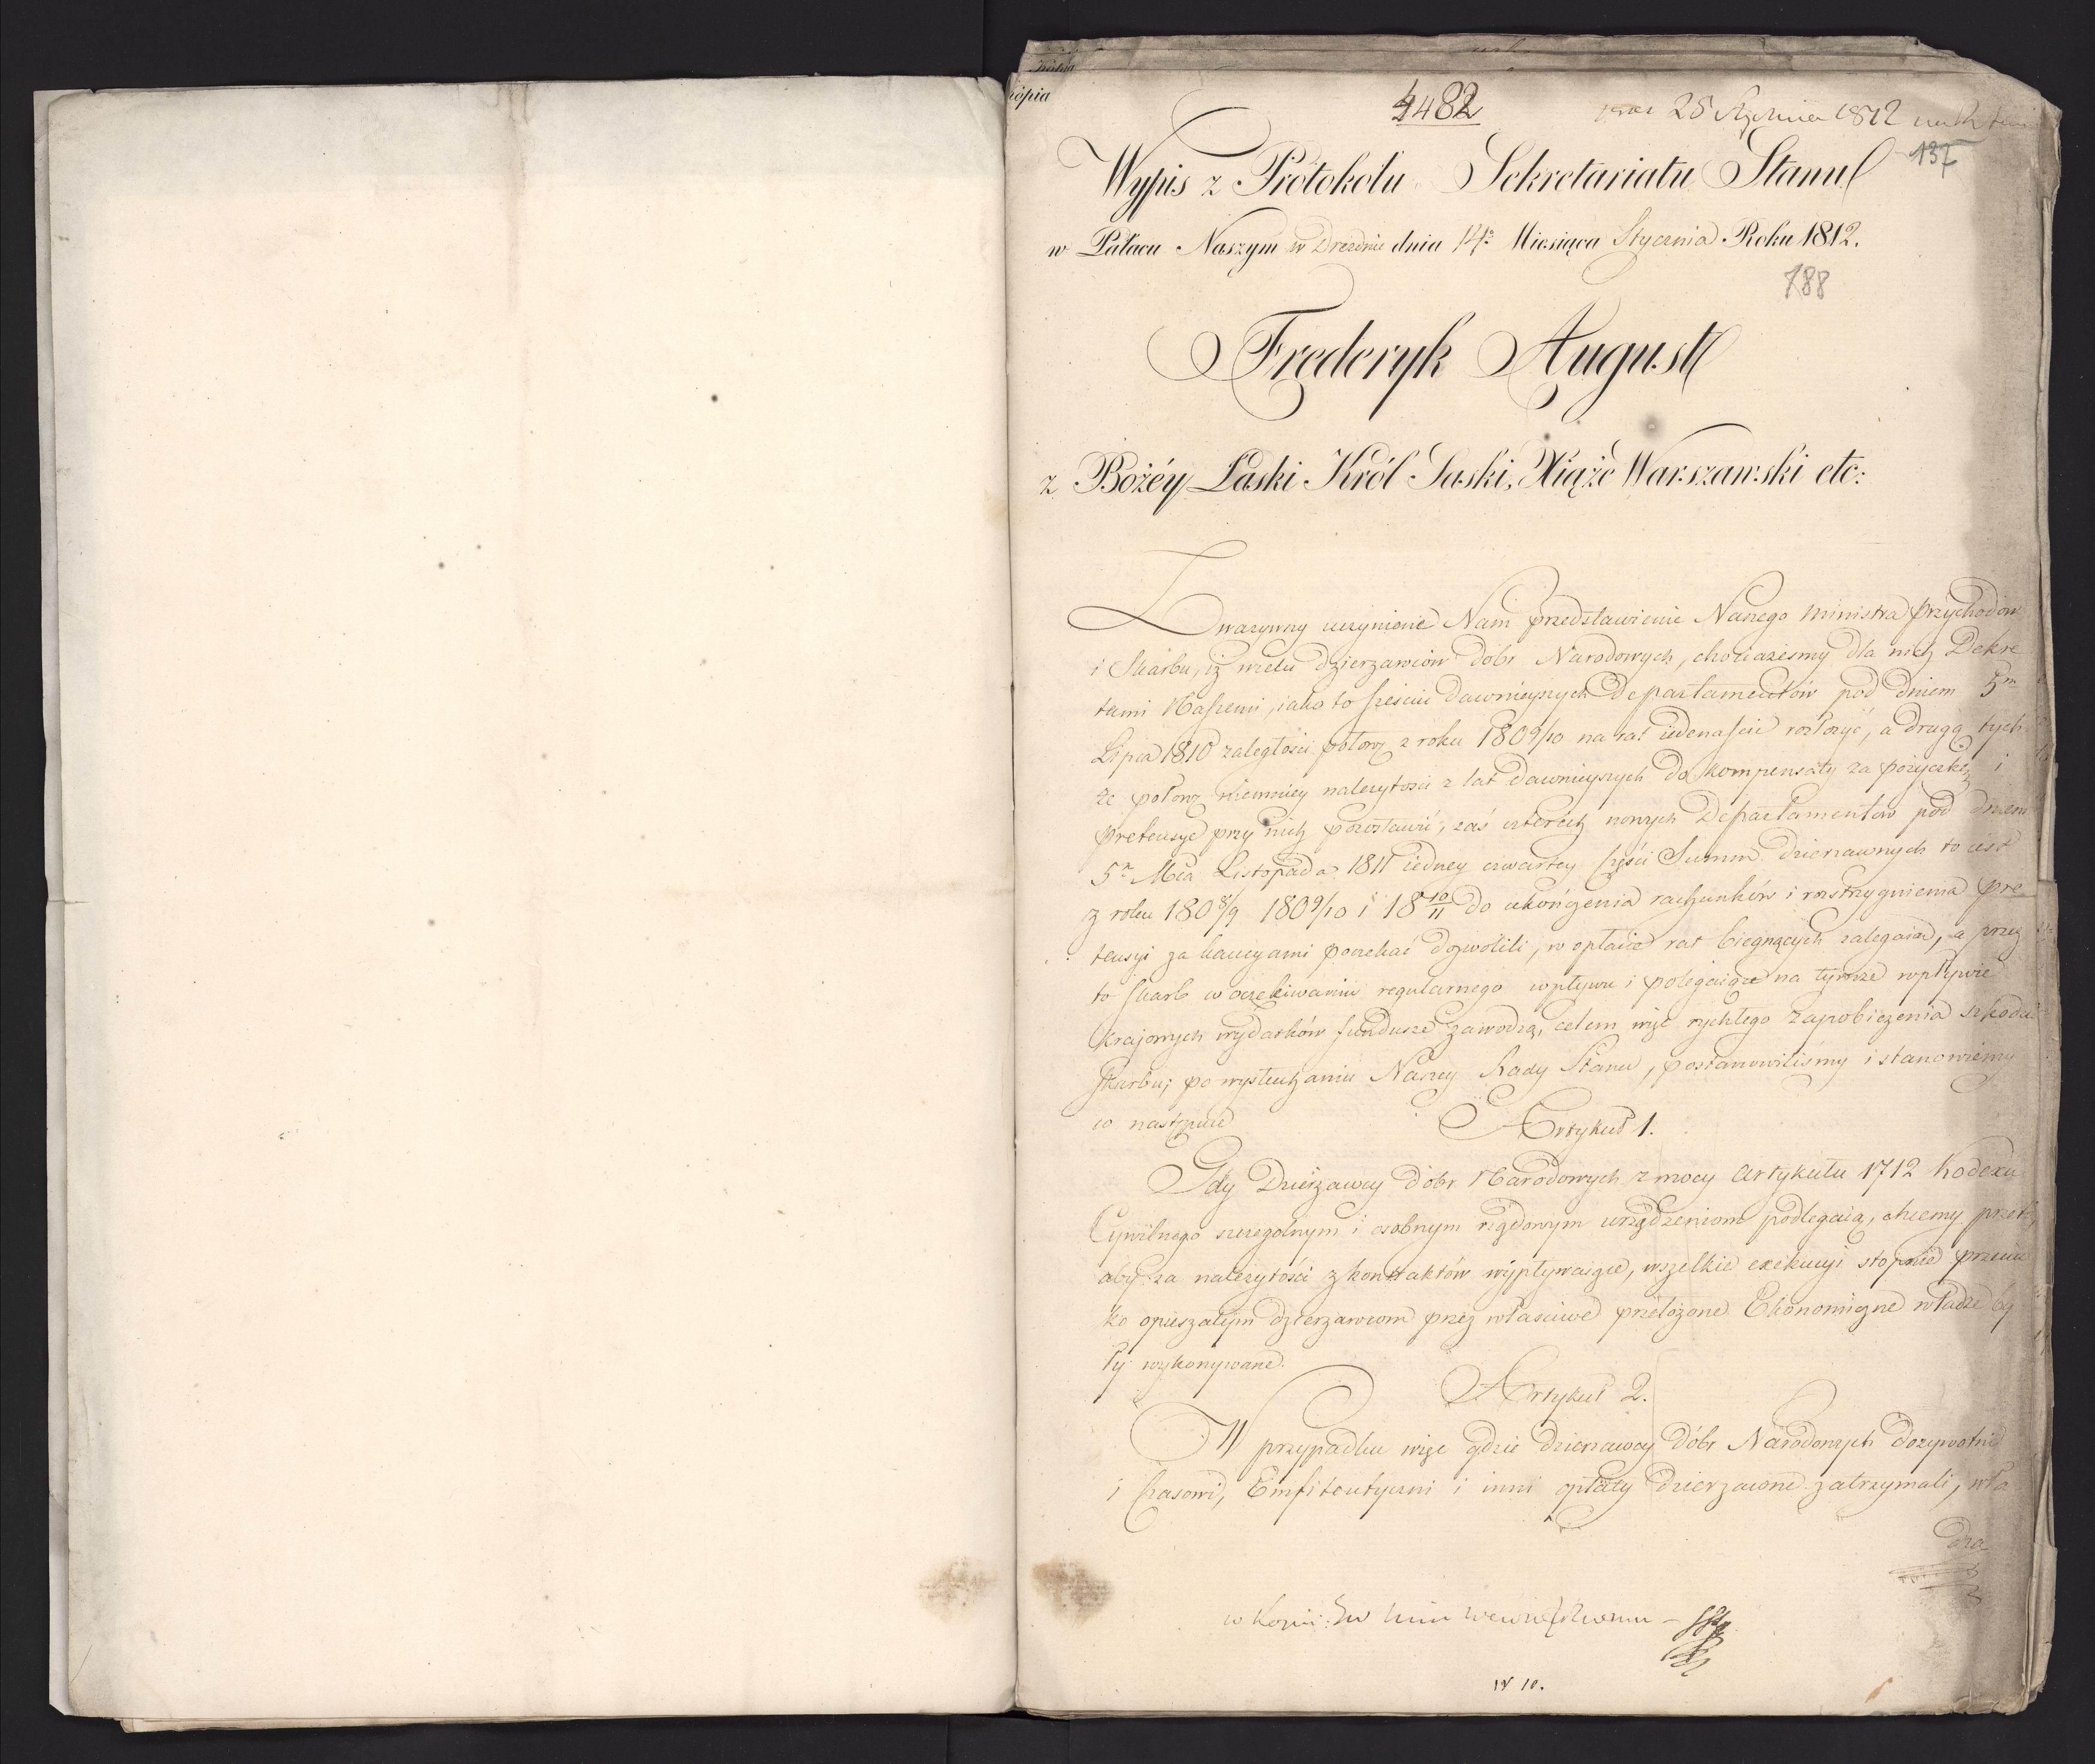 Kopia
4482
25 Stycznia 1812
137
Wypis z Protokołu Sekretariatu Stanu
w Pałacu Naszym w Dreźnie dnia 14º Miesiąca Stycznia Roku 1812.
788
Frederyk August
z Bożéy Łaski Król Saski, Xiąże Warszawski etc:
Zważywszy uczynione Nam przedstawienie Naszego Ministra Przychodów
i Skarbu, iż wielu dzierzawców dóbr Narodowych, chociażesmy dla nich Dekre
tami Naszemi, iako to sześciu dawnieyszych Departamentów pod dniem 5m
Lipca 1810 zaległości połowę z roku 1809/10 na rat iedenaście rozłożyć, a drugą tych
że połowę niemniey należytości z lat dawnieyszych do kompensaty za pożyczkę i
pretensye przy nich pozostawić, zaś czterech nowych Departamentów pod dniem
5m Mca Listopada 1811 iedney czwartey części Summ dzierzawnych to iest
z roku 1808/9 1809/10 i 18 10/11 do ukończenia rachunków i rozstrzygnienia pre
tensyi za kaucyami poczekać dozwolili, w opłacie rat bieguących zalegaią, a przez
to Skarb w oczekiwaniu regularnego wpływu i polegaiące na tymże wpływie
krajowych wydatków fundusze zawodzą, celem więc rychłego zapobieżenia szkodzie
Skarbu; po wysłuchaniu Naszey Rady Stanu, postanowiliśmy i stanowiemy
co następuie
Artykuł 1.
Gdy Dzierżawcy dóbr Narodowych z mocy Artykułu 1712 Kodexu
Cywilnego szczególnym i osobnym rządowym urządzeniom podlegaią, chcemy przeto,
aby za należytości z kontraktów wypływaiące, wszelkie exekucyi stopnie przeciw
ko opieszałym dzierzawcom przez właściwe przełożone Ekonomiczne władze by
ły wykonywane.
Artykuł 2.
W przypadku więc gdzie dzierzawcy dóbr Narodowych dożywotni
i Czasowi, Emfiteutyczni i inni opłaty dzierzawne zatrzymali, wła
dza
w Kopii
N 10.